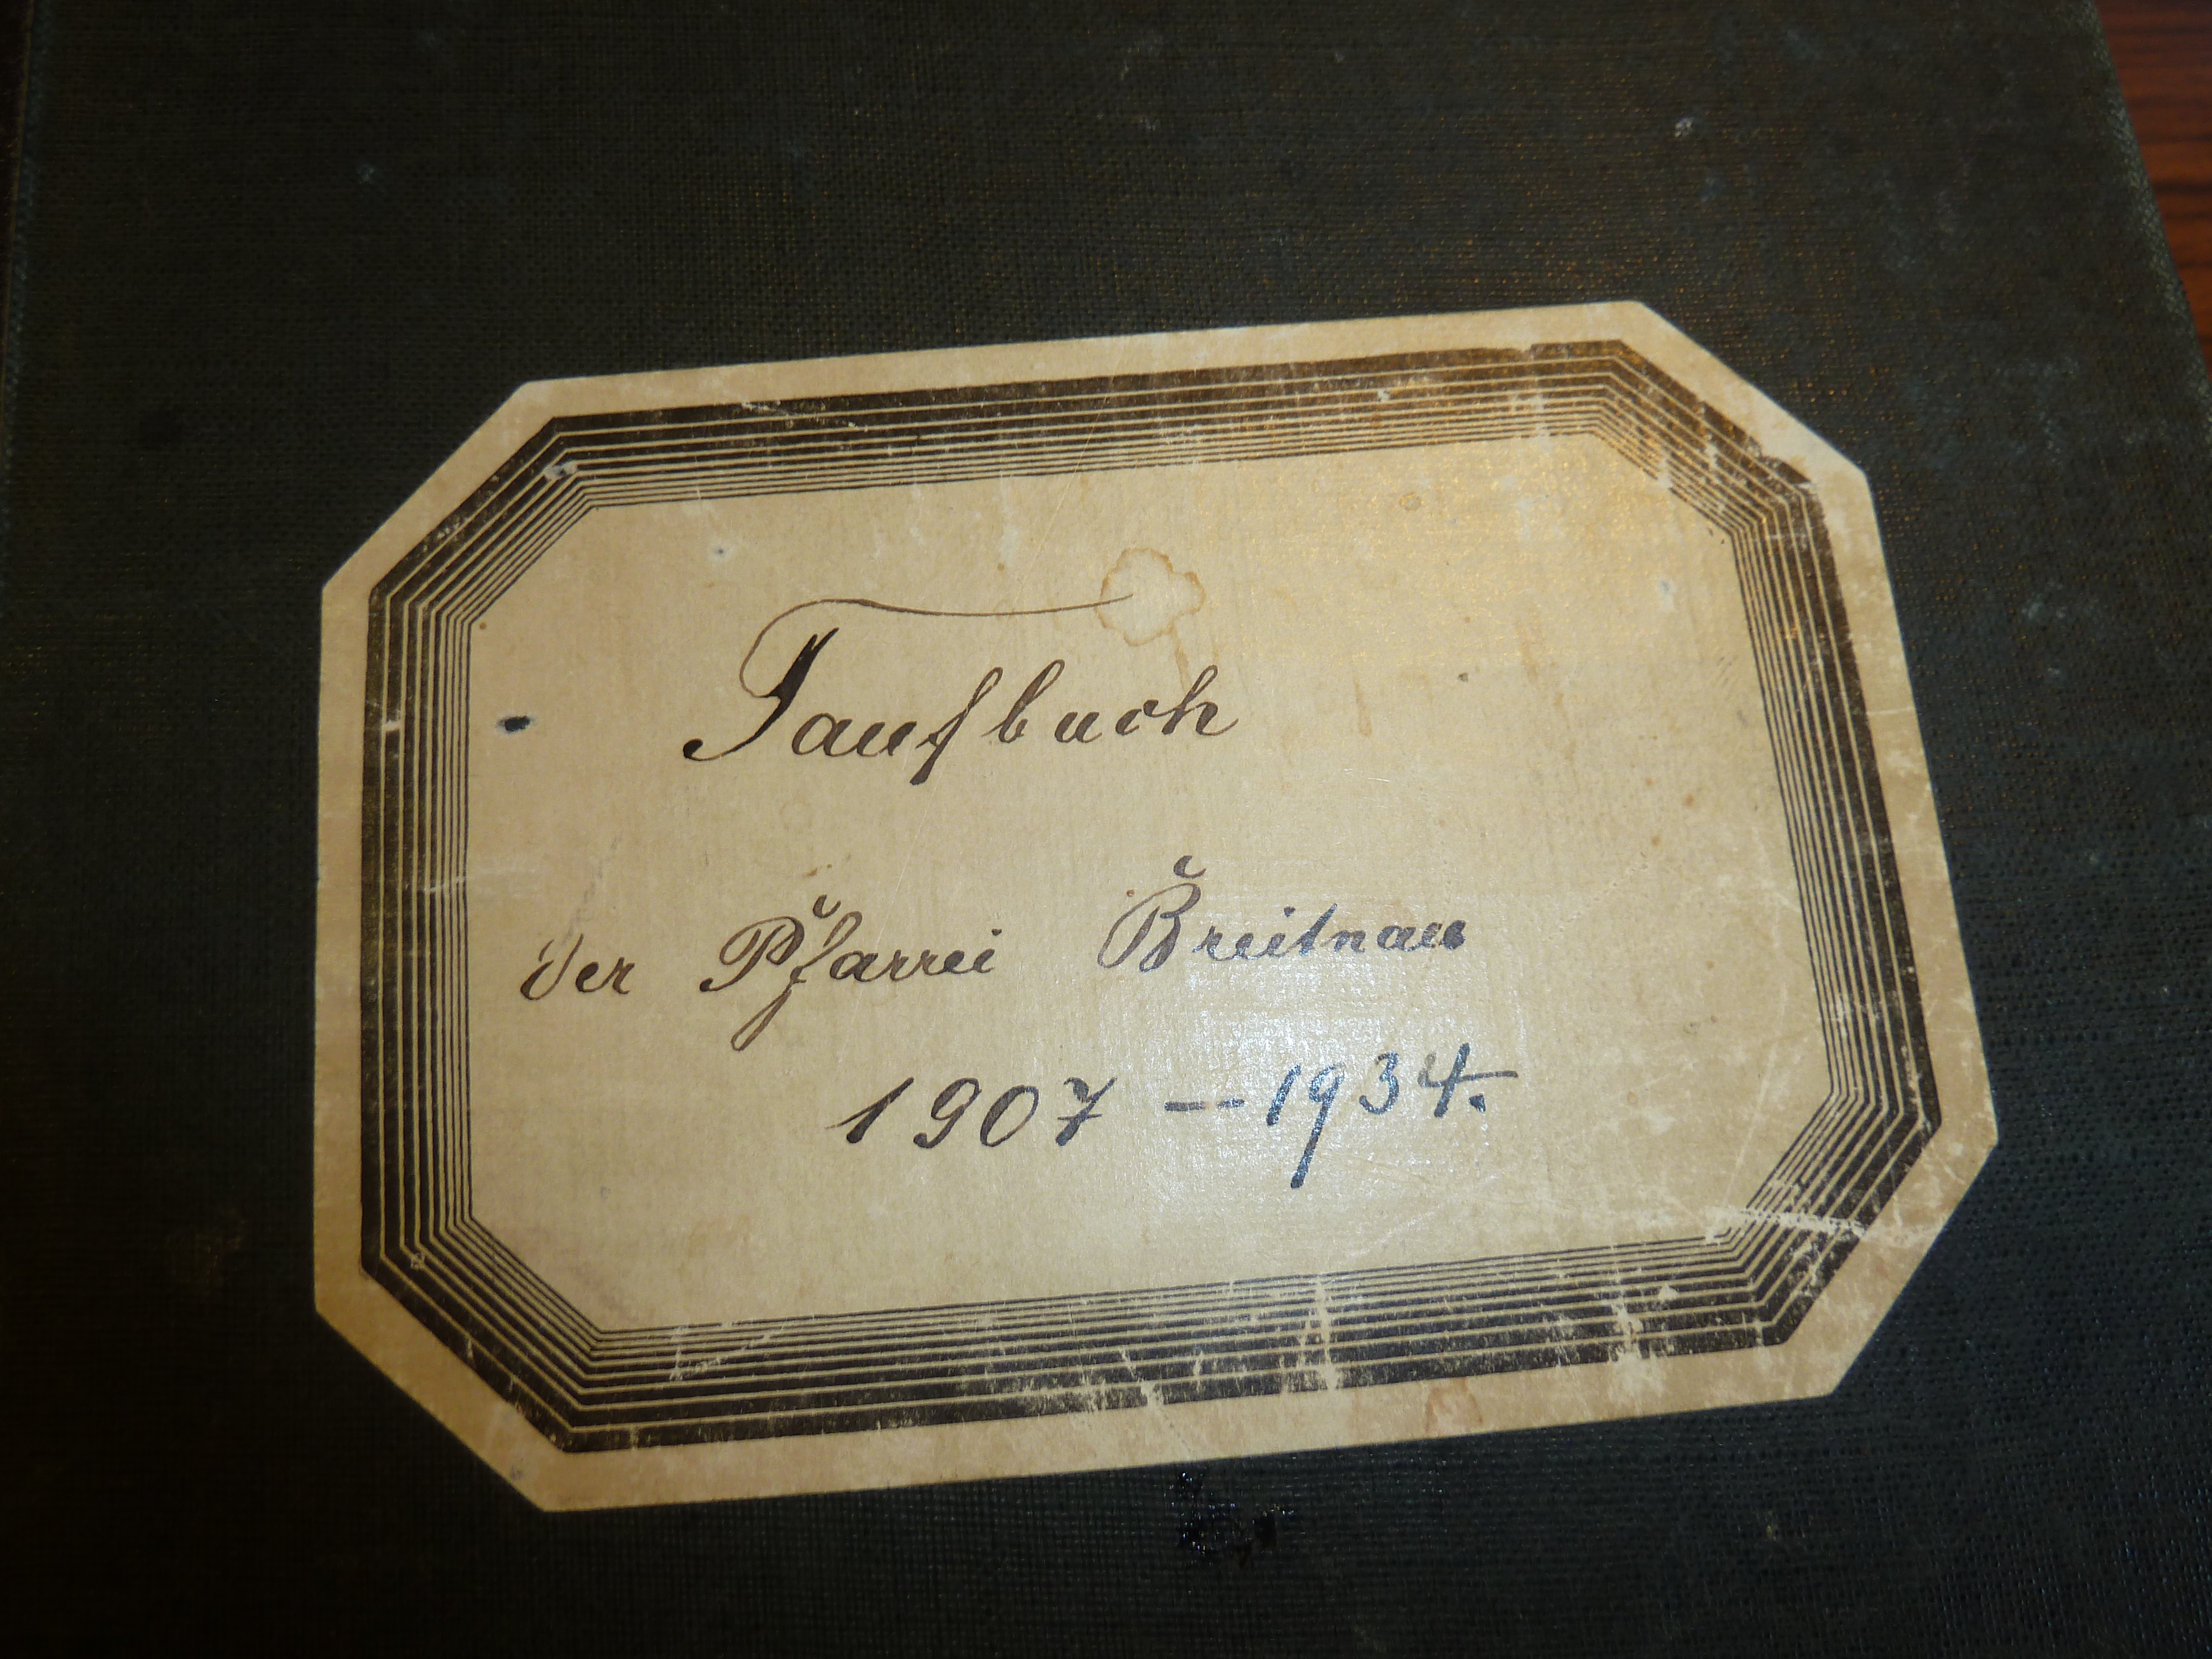 Taufbuch
der Pfarrei Breitnau
1907 — 1934.